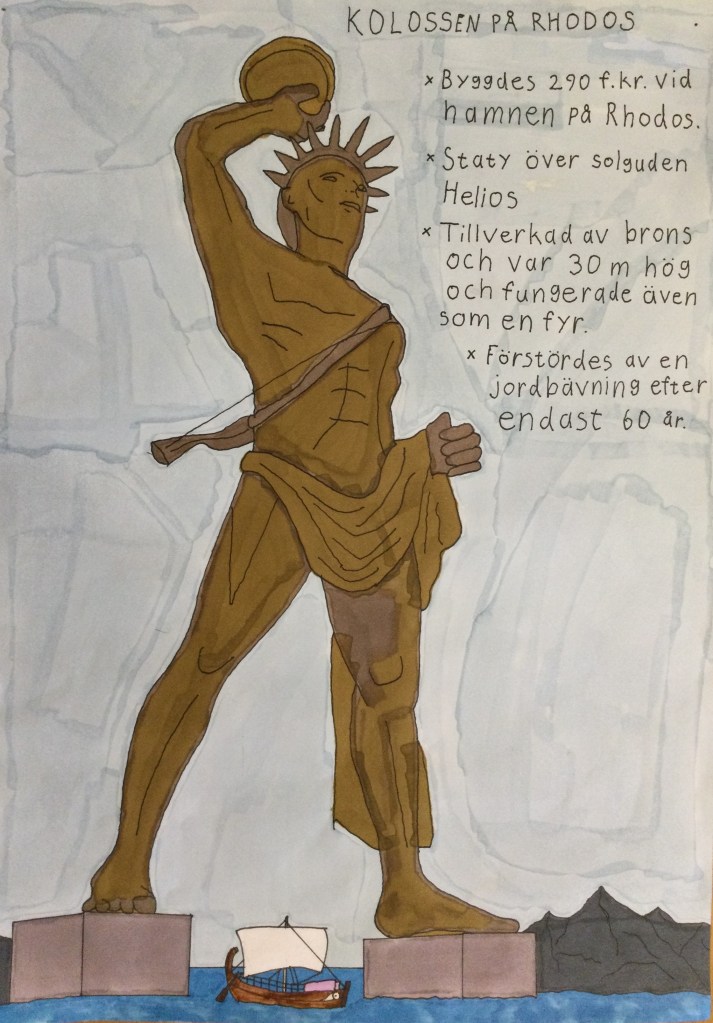 KOLOSSEN PÅ RHODOS
x Byggdes 290 f.kr. vid
hamnen på Rhodos.
x Staty över solguden
Helios
x Tillverkad av brons
och var 30 m hög
och fungerade även
som en fyr.
x Förstördes av en
jordbävning efter
endast 60 år.